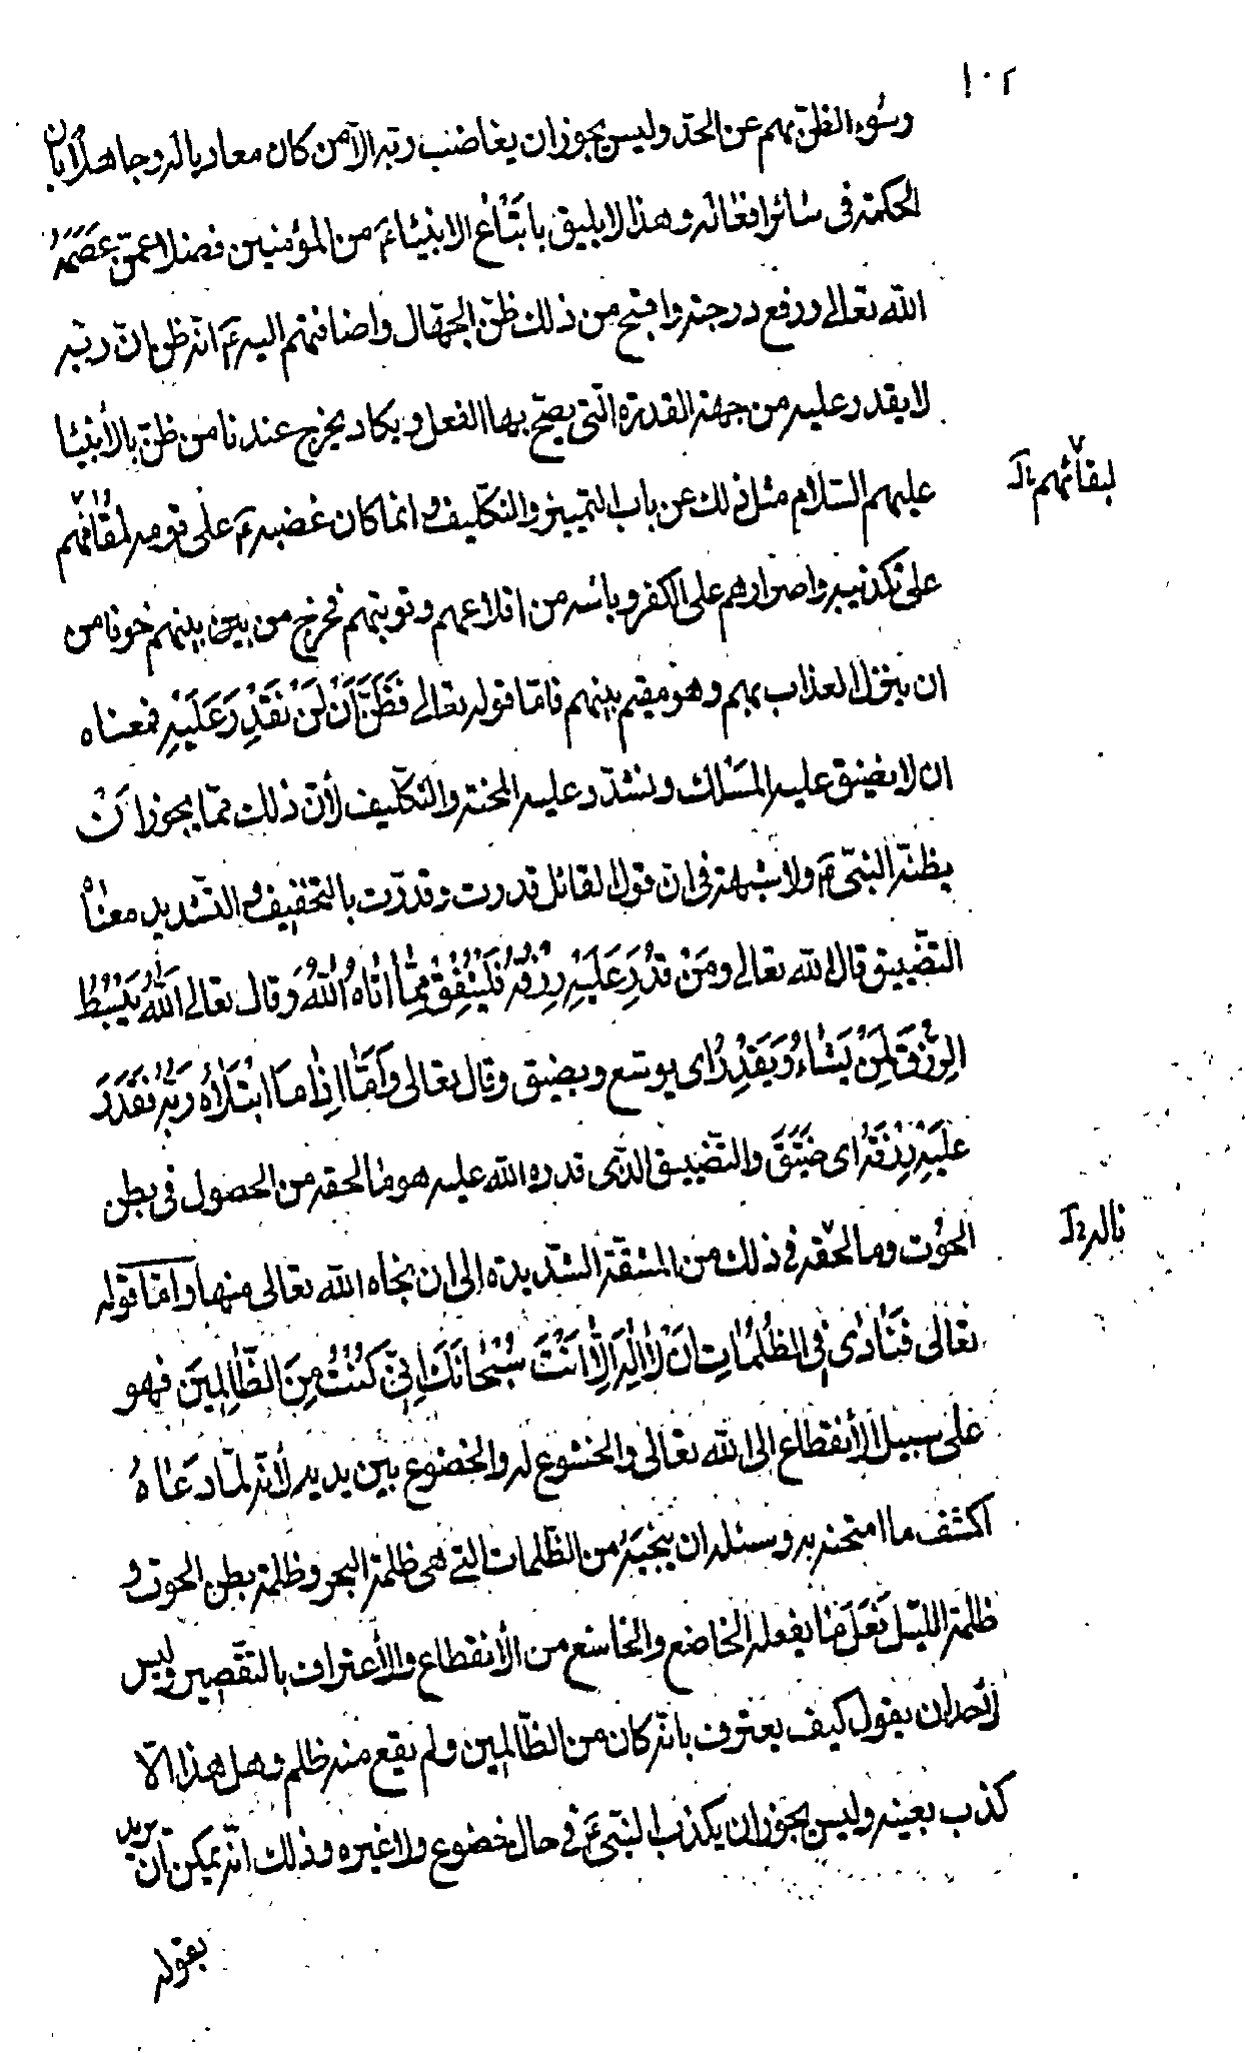 ١٠٢
وسُوء الظنّ بهم عن الحدّ وليس يجوز ان يغاضب ربّه الّا من كان معاديا له وجاهلاً بان
الحكمة فى سٰائر افعٰاله وهذا لا يليق باتبٰاع الانبيٰاء ۴ من المؤمنين فضلا عمّن عَصَمَهُ
الله تعالى ورفع درجته واقبح من ذلك ظنّ الجهّال واضافتهم اليه ۴ انّه ظن انّ ربّه
لا يقدر عليه من جهة القدرة الّتى يصحّ بها الفعل ويكاد يخرج عندنا من ظنّ بالأنبيٰا
عليهم السّلام مثل ذلك عن باب التمييز والتّكليف و انما كان غضبه ۴ على قومه لمقٰامهم
لبقٰائهم خ ل
على تكذيبه واصرارهم على الكفر وياسه من اقلاعهم وتوبتهم فخرج من بين بينهم خوفا من
ان ينزل العذاب بهم وهو مقيم بينهم فامّا قوله تعالى فَظَنَّ اَنْ لَنْ نَقْدِرَ عَلَيْهِ فمعناه
ان لا يضيق عليه المسٰلك ونشدّد عليه المحنة والتّكليف لأنّ ذلك ممّا يجوز اَنْ
يظنّه النبىّ ۴ ولا شبهة فى ان قول القائل قدرت وقدّرت بالتخفيف و التّشديد معنٰاهُ
التضّييق قال الله تعالى ومَنْ قُدِرَ عَلَيْهِ رِزْقُهُ فَلْيُنْفِقْ مِمّٰا اتٰاهُ اللهُ وَقال تعالى اَللهُ يَبْسُطُ
الرِّزْقَ لِمَنْ يَشٰاءُ وَيَقْدِرُ اى يوسّع ويضيق وقال تعالى وَاَمّٰا اِذٰا مَا ابْتَلٰاهُ رَبُّهُ فَقَدَرَ
عَلَيْهِ رِزْقَهُ اى ضَيَّقَ والتضّييق الذّى قدره الله عليه هو مٰا لحقه من الحصول فى بطن
الحوُت وما لحقه فى ذلك من المشقّة الشّديدة الى ان نجاه الله تعالى منها وامّا قوله
نٰاله خ ل
تعالى فَنٰادٰى فِى الظُلُمٰاتِ اَنْ لٰا اِلٰهَ اِلّٰا اَنْتَ سُبْحٰانَكَ اِنّى كُنْتُ مِنَ الظّٰالِمِينَ فهو
على سبيل الأنقطاع الى الله تعالى والخشوع له والخضوع بين يديه لأنّه لمّا دعٰاهُ
لكشف ما امتحنه به وسئله ان ينجيَهُ من الظّلمات التى هى ظلمة البحر وظلمة بطن الحوت و
ظلمة الليل فَعَلَ مٰا يفعله الخاضع والخاشع من الأنقطاع والأعتراف بالتّقصير وليس
لأحد ان يقول كيف يعترف بانّه كان من الظّالمين ولم يقع منه ظلم وهل هذا الّا
كذب بعينه وليس يجوز ان يكذب النبّى ۴ فى حال خضوع ولا غيره وذلك انّه يمكن ان يريد
بقوله